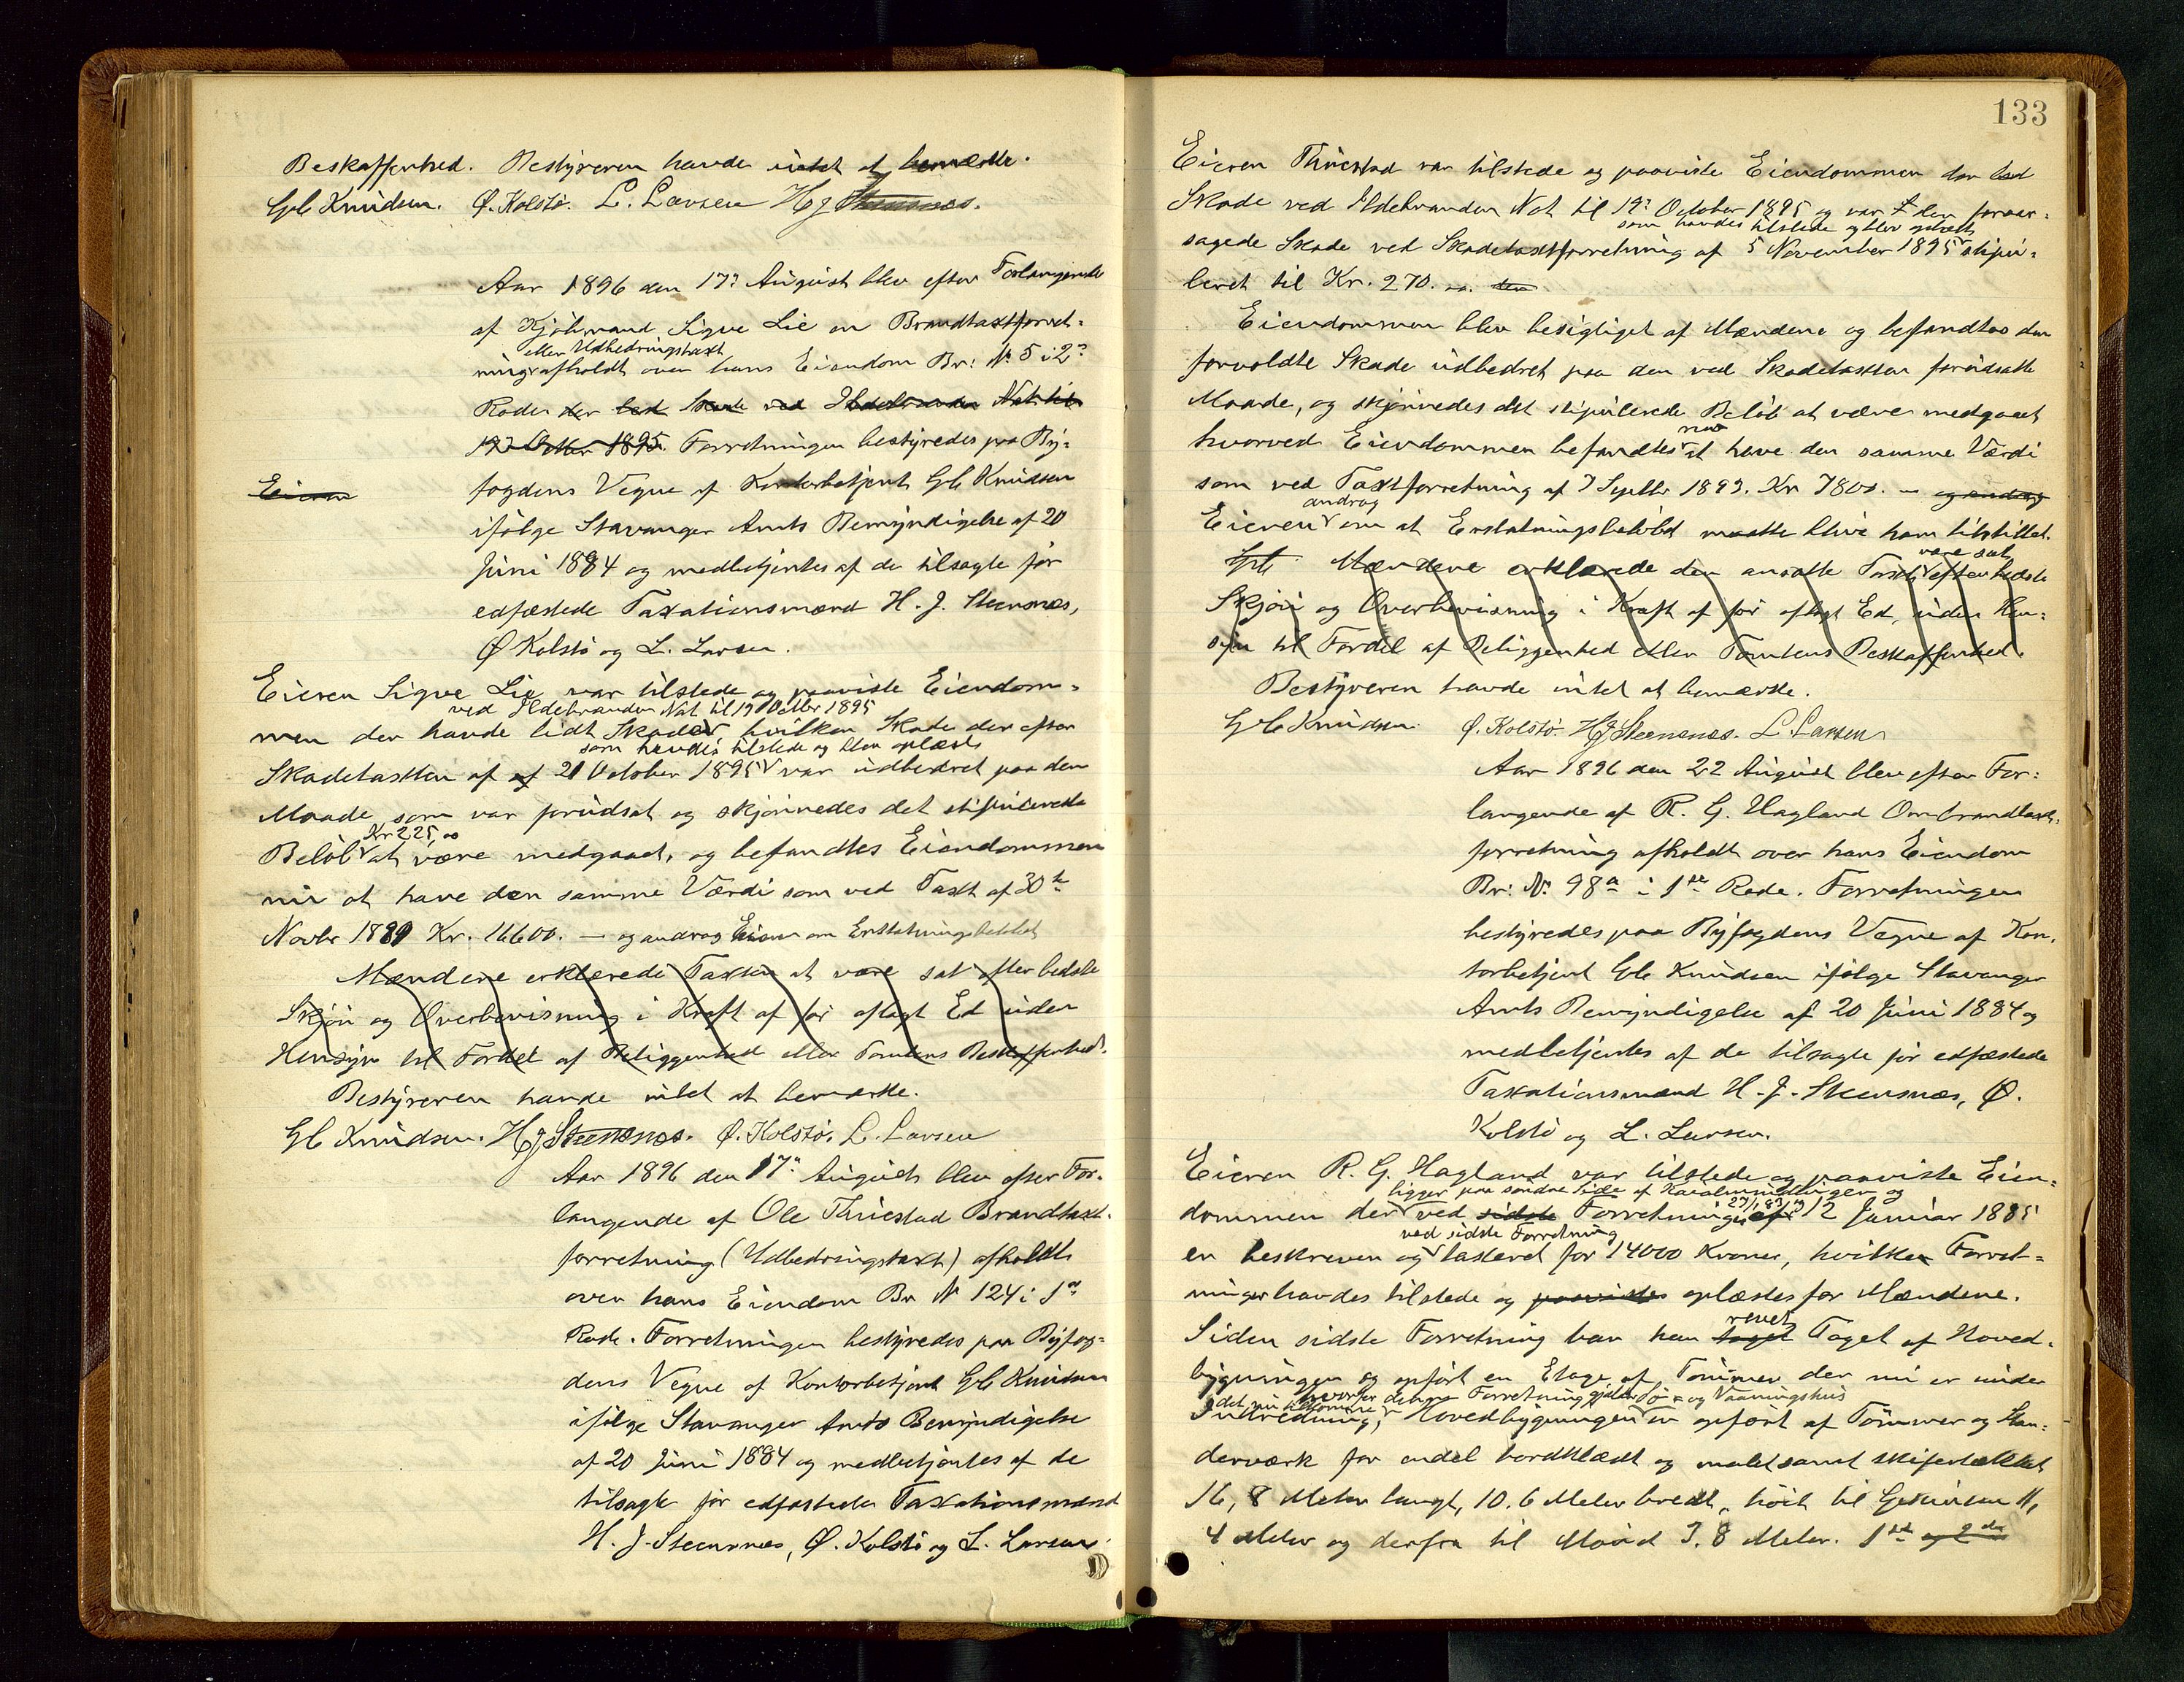 Beskaffenhed. Bestyreren havde intet at bemærke.
Gb Knudsen. Ø. Kolstø. L. Larsen HJ Steensnæs.
Aar 1896 den 17de August blev efter Forlangende
af Kjøbmand Sigve Lie en Brandtaxtforret-
eller Udbedringstaxt
ning afholdt over hans Eiendom Br: No 5 i 2de
Rode der led Skade ved Ildebranden Nat til
19de Octbr 1895. Forretningen bestyredes paa By-
Eieren
fogdens Vegne af Kontorbetjent Gb Knudsen
ifølge Stavanger Amts Bemyndigelse af 20
Juni 1884 og medbetjentes af de tilsagte før
edfæstede Taxationsmænd H. J. Steensnæs,
Ø Kolstø og L. Larsen.
Eieren Sigve Lie var tilstede og paaviste Eiendom-
ved Ildebranden Nat til 19 Octbr 1895
men der havde lidt Skade hvilken Skade der efter
som havdes tilstede og blev oplæst
Skadetaxten af af 21 October 1895 var udbedret paa den
Maade som var forudsat og skjønnedes det stipulerede
Kr 225,00
Beløb at være medgaaet, og befandtes Eiendommen
nu at have den samme Værdi som ved Taxt af 30te
Novbr 1889 Kr. 16600. — og androg Eieren om Erstatningsbeløbet
Mændene erklærede Taxten at være sat efter bedste
Skjøn og Overbevisning i Kraft af før aflagt Ed uden
Hensyn til Fordel af Beliggenhed eller Tomtens Beskaffenhed.
Bestyreren havde intet at bemærke.
Gb Knudsen. HJ Steensnæs. Ø. Kolstø. L. Larsen
Aar 1896 den 17de August blev efter For-
langende af Ole Thuestad Brandtaxt-
forretning (Udbedringstaxt) afholdt
over hans Eiendom Br No 124 i 1ste
Rode. Forretningen bestyredes paa Byfog-
dens Vegne af Kontorbetjent Gb Knudsen
ifølge Stavanger Amts Bemyndigelse
af 20 Juni 1884 og medbetjentes af de
tilsagte før edfæstede Taxationsmænd
H. J. Steensnæs, Ø. Kolstø og L. Larsen.
133
Eieren Thuestad var tilstede og paaviste Eiendommen der led
Skade ved Ildebranden Nat til 19de October 1895 og var den foraar-
som havdes tilstede og blev oplæst
sagede Skade ved Skadetaxtforretning af 5 November 1895 stipu-
leret til Kr. 270. —
Eiendommen blev besigtiget af Mændene og befandtes den
forvoldte Skade udbedret paa den ved Skadetaxten forudsatte
Maade, og skjønnedes det stipulerede Beløb at være medgaaet
nu
hvorved Eiendommen befandtes at have den samme Værdi
som ved Taxtforretning af 7 Septbr 1893. Kr 7800. — og androg
androg
Eieren om at Erstatningsbeløbet maatte blive ham tilstillet.
være sat
Gb Mændene erklærede den ansatte Taxt efter bedste
Skjøn og Overbevisning i Kraft af før aflagt Ed, uden Hen-
syn til Fordel af Beliggenhed eller Tomtens Beskaffenhed.
Bestyreren havde intet at bemærke.
Gb Knudsen Ø. Kolstø. HJ Steensnæs. L. Larsen
Aar 1896 den 22 August blev efter For-
langende af R. G. Hagland Ombrandtaxt-
forretning afholdt over hans Eiendom
Br: No 98a i 1ste Rode. Forretningen
bestyredes paa Byfogdens Vegne af Kon-
torbetjent Gb Knudsen ifølge Stavanger
Amts Bemyndigelse af 20 Juni 1884 og
medbetjentes af de tilsagte før edfæstede
Taxationsmænd H. J. Steensnæs, Ø.
Kolstø og L. Larsen.
Eieren R. G. Hagland var tilstede og paaviste Eien-
ligger paa søndre Side af og
dommen der ved sidste Forretninger af 12 Januar 1885
ved sidste Forretning
er beskreven og taxeret for 14000 Kroner, hvilken Forret-
ninger havdes tilstede og paavistes oplæstes for Mændene.
revet
Siden sidste Forretning har han taget Taget af Hoved-
bygningen og opført en Etage af Tømmer der nu er under
hvorfor denne Forretning gjelder Sø- og Vaaningshus
Indredning, Hovedbygningen er opført af Tømmer og Stan-
derværk for endel bordklædt og malet samt skifertækket
16,8 Meter langt, 10.6 Meter bredt, høit til Gesimsen 11,
4 Meter og derfra til Mønet 3.8 Meter. 1ste og 2den